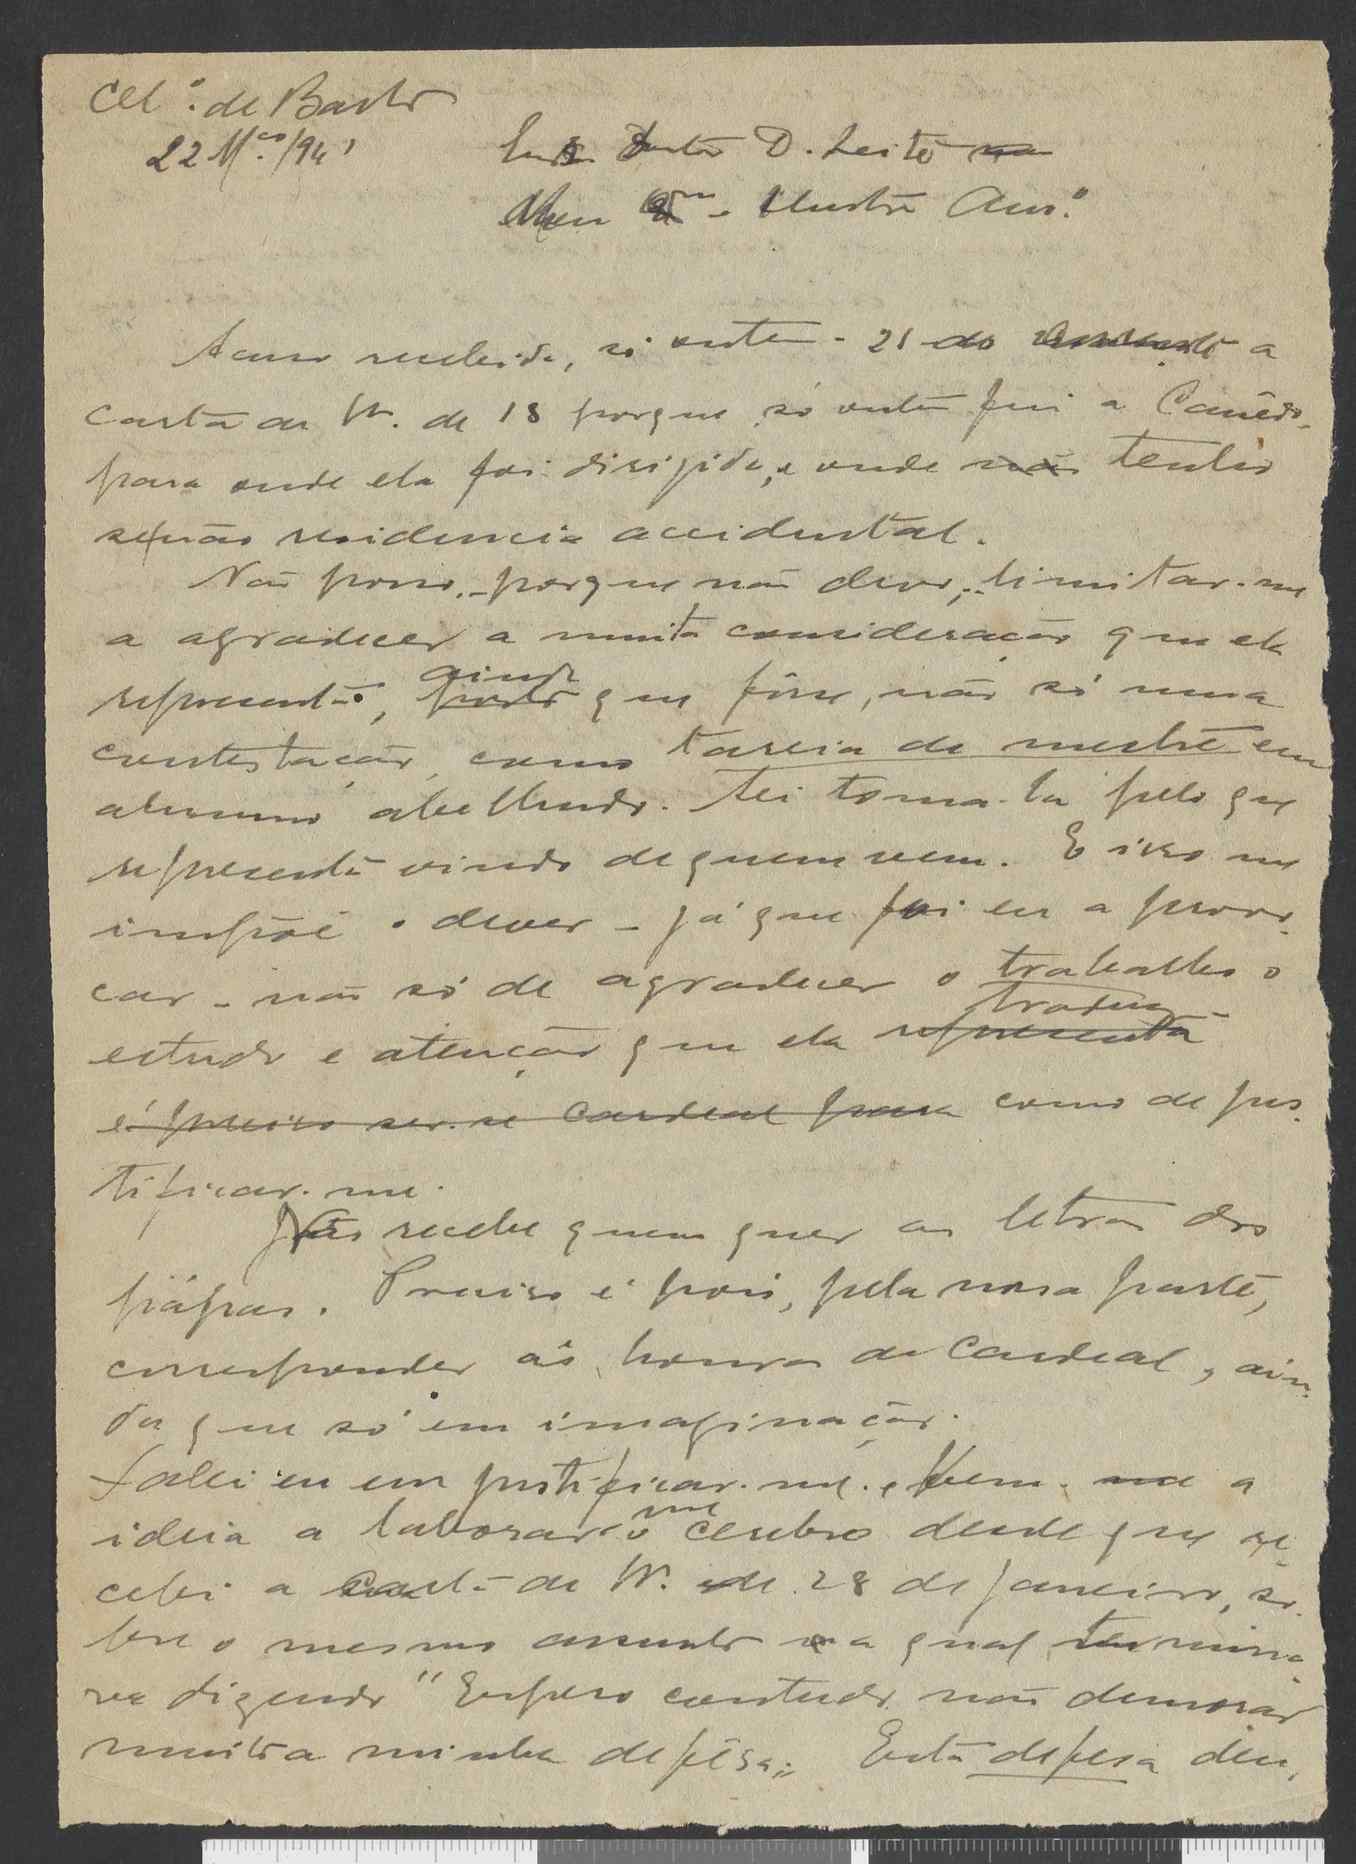 Cel.º de Basto
22 M.ço/941
Doutor D. Leite
Meu Ilustre Am.º
Acuso recebida, só ontem - 21 do a
carta de V. de 18 porque só ontem fui a Canêdo,
para onde ela foi dirigida, e onde não tenho
senão residencia accidental.
Não posso, - porque não devo, - limitar-me
a agradecer a muita consideração que ela
representa, ainda que fôsse, não só uma
contestação, como tareia de mestre em
alumno abelhudo. Sei toma-la pelo que
representa vindo de quem vem. E isso me
impõe o dever - já que fui eu a provo-
car - não só de agradecer o trabalho o
estudo e atenção que ela representa traduz
é preciso ser-se cardeal para como de jus-
tificar-me.
Não recebe quem quer as letras dos
pápas. Preciso é pois, pela nossa parte,
corresponder ás honras de Cardeal, ain-
da que só em imaginação.
Falei eu em justificar-me. e vem a
ideia a laborar-me o cerebro desde que re-
cebi a carta de V. de 28 de Janeiro, so-
bre o mesmo assunto na qual termina-
va dizendo "Espero contudo não demorar
muito a minha defêsa". Esta defesa deu,